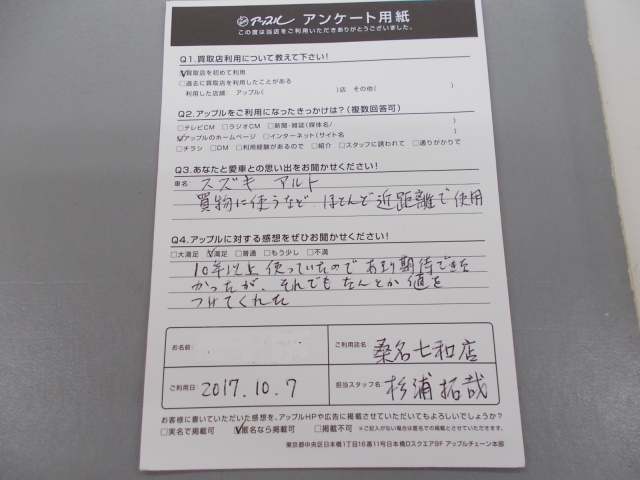 アップル アンケート用紙
この度は当店をご利用いただきありがとうございました。
Q1.買取店利用について教えて下さい!
☑買取店を初めて利用
□過去に買取店を利用したことがある
利用した店舗: アップル( )店 その他( )
Q2.アップルをご利用になったきっかけは?(複数回答可)
□テレビCM □ラジオCM □新聞・雑誌(媒体名/ )
☑アップルのホームページ □インターネット(サイト名 )
□チラシ □DM □利用経験があるので □紹介 □スタッフに誘われて □通りがかりで
Q3.あなたと愛車との思い出をお聞かせください!
車名: スズキ アルト
買物に使うなど、ほとんど近距離で使用
Q4.アップルに対する感想をぜひお聞かせください!
□大満足 ☑満足 □普通 □もう少し □不満
10年以上使っていたのであまり期待できな
かったが、それでもなんとか値を
つけてくれた
お名前:
ご利用店名 桑名七和店
ご利用日: 2017.10.7
担当スタッフ名 杉浦拓哉
お客様に書いていただいた感想を、アップルHPや広告に掲載させていただいてもよろしいでしょうか?
□実名で掲載可 ☑匿名なら掲載可 □掲載不可 ※ご記入がない場合は匿名での掲載とさせていただきます。
東京都中央区日本橋1丁目16番11号日本橋Dスクエア9F アップルチェーン本部